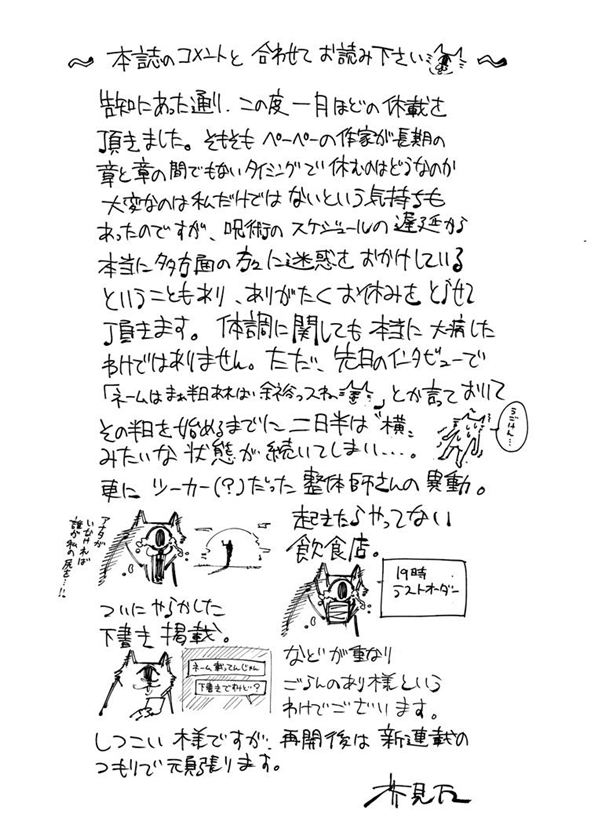 ～ 本誌のコメントと合わせてお読み下さい ～
告知にあった通り、この度一月ほどの休載を
頂きました。そもそもペーペーの作家が長期の
章と章の間でもないタイミングで休むのはどうなのか
大変なのは私だけではないという気持ちも
あったのですが、呪術のスケジュールの遅延から
本当に多方面の方々に迷惑をおかけしている
ということもあり、ありがたくお休みをとらせて
頂きます。体調に関しても本当に大病した
わけではありません。ただ、先日のインタビューで
「ネームはまぁ半日あれば余裕っスね」とか言っておいて
その半日を始めるまでに二日半は"横"
みたいな状態が続いてしまい…。
うごけん…
更にツーカー(?)だった整体師さんの異動。
アナタが
いなければ
誰が私の尻を…!!
起きたらやってない
飲食店。
19時
ラストオーダー
ついにやらかした
下書き掲載。
ネーム載ってんじゃん
下書きですけど?
などが重なり
ごらんのあり様という
わけでございます。
しつこい様ですが、再開後は新連載の
つもりで頑張ります。
芥見下々